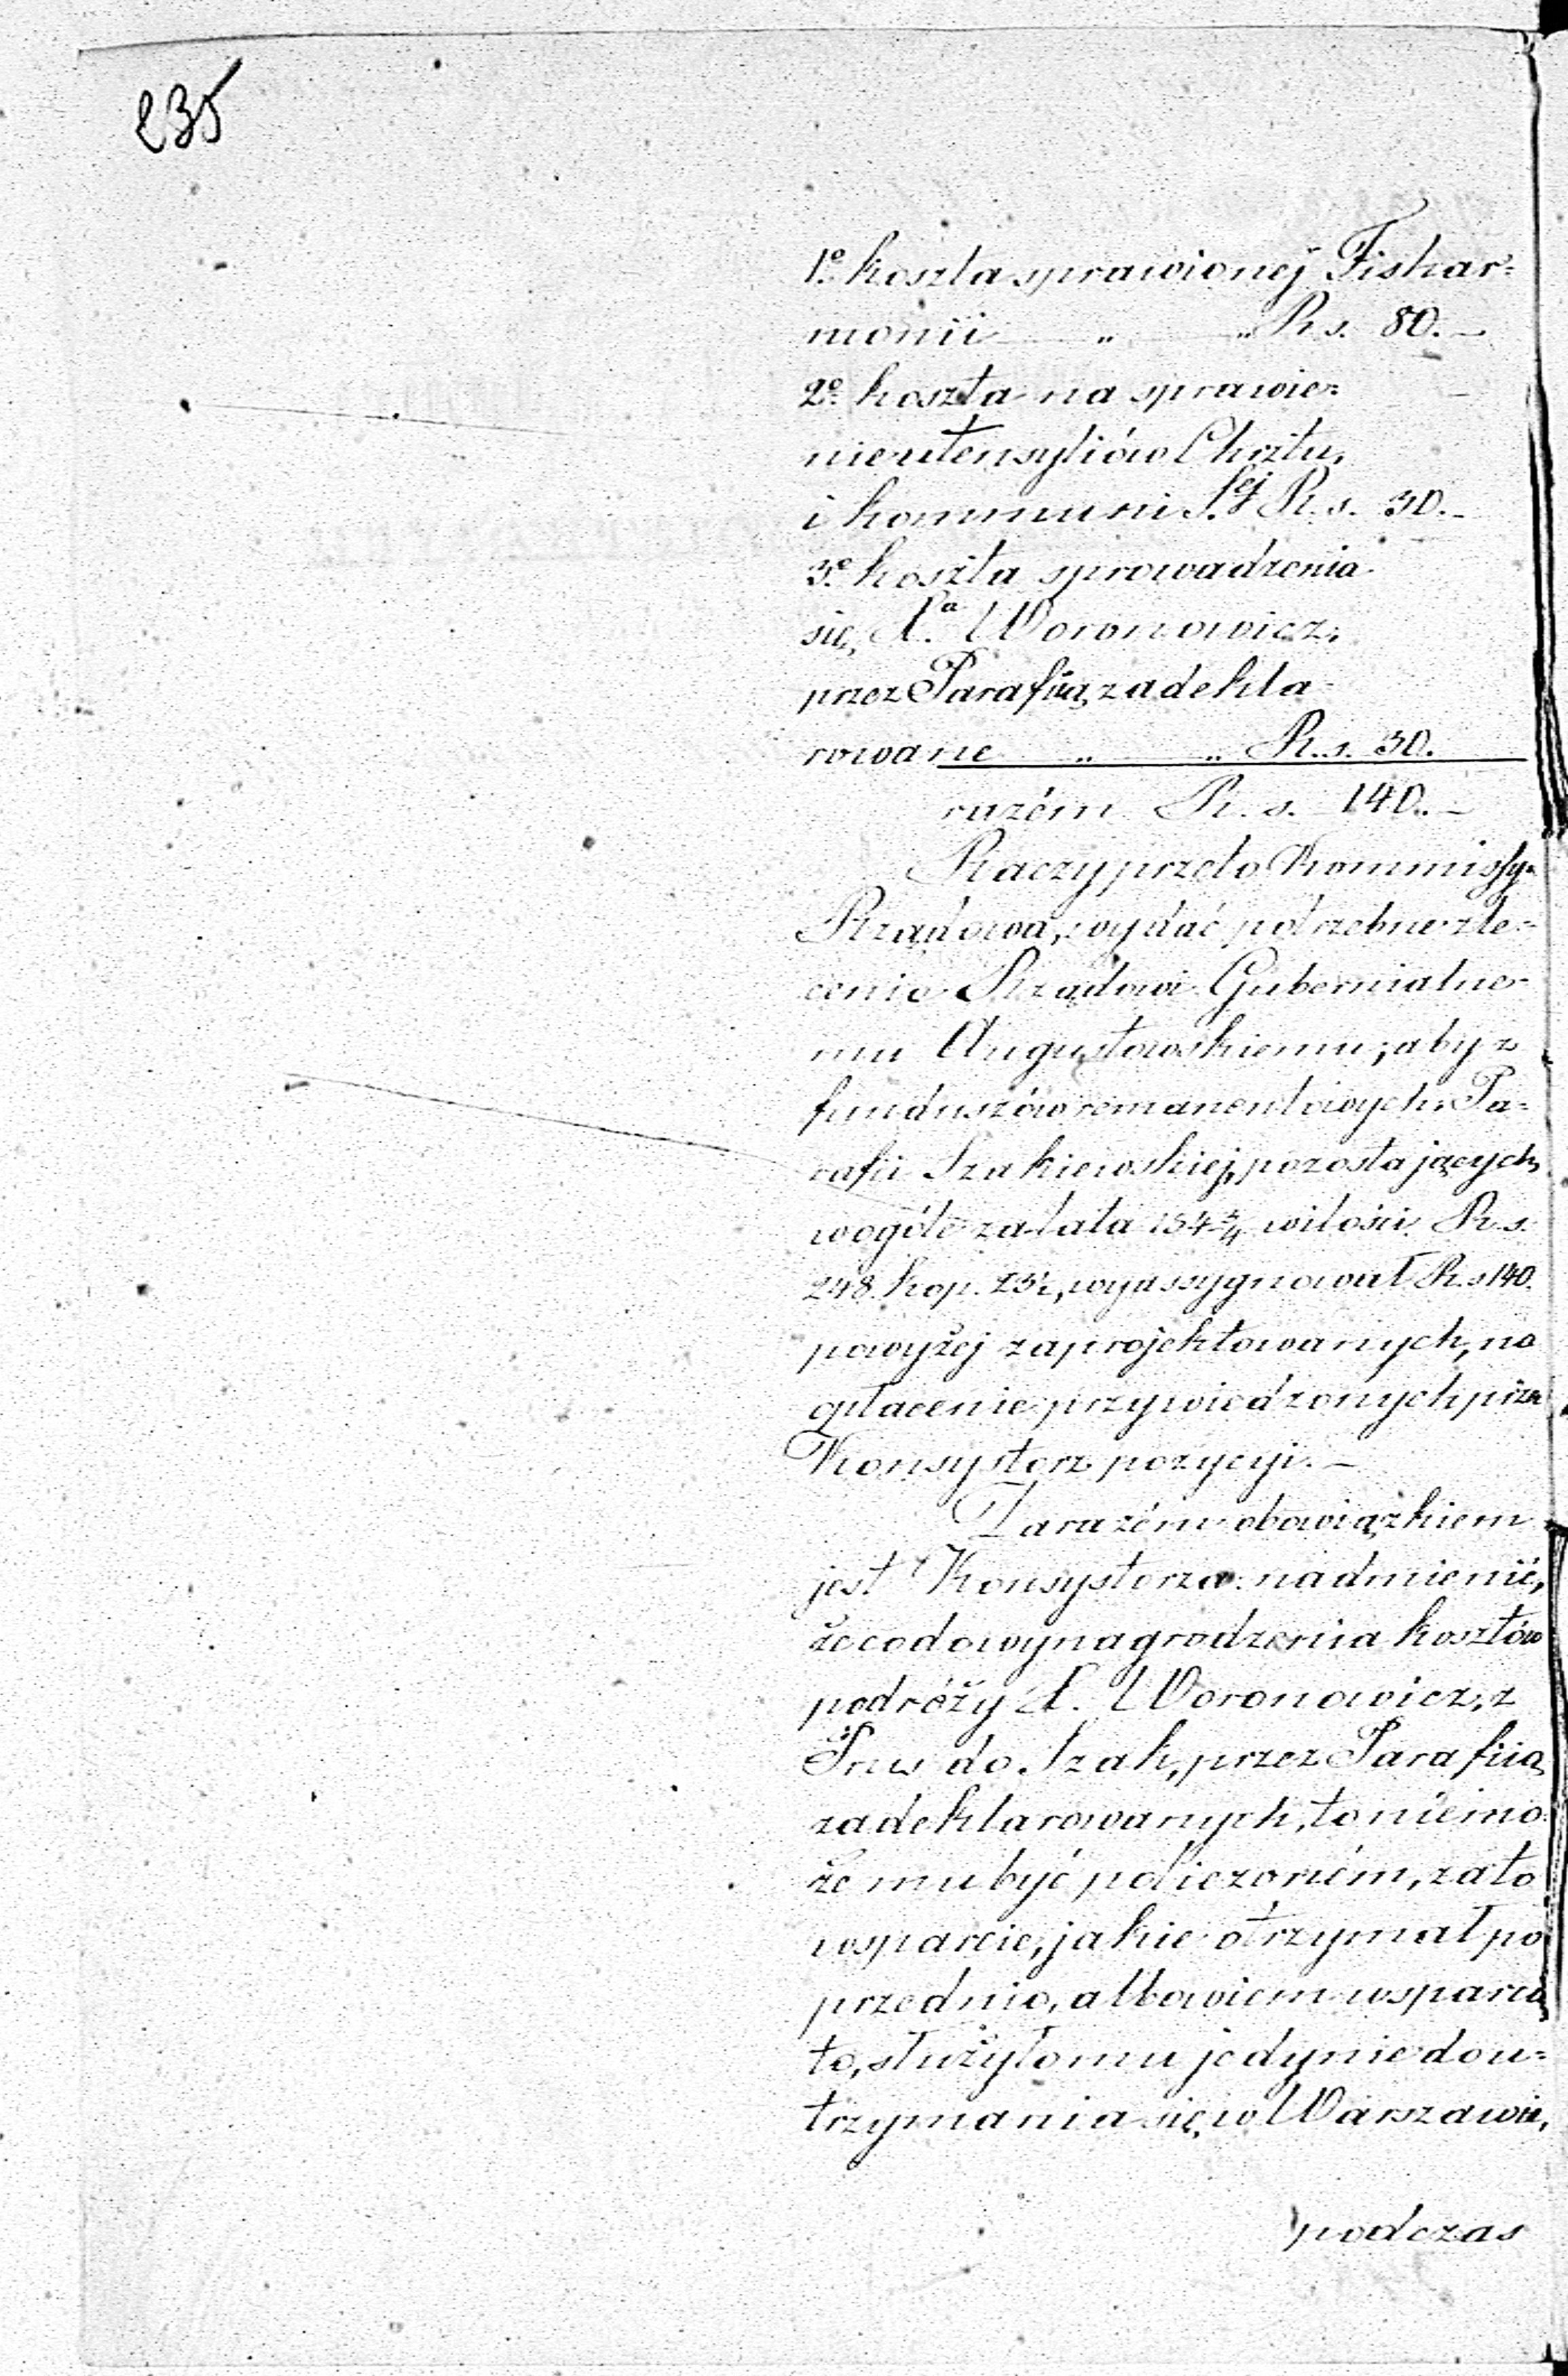 235
1º koszta sprawionej Fishar=
monii " " R s. 80. —
2º koszta na sprawie=
nie utensyliów Chrztu,
i kommuni S.ej R. s. 30. —
3º koszta sprowadzenia
się, X.a Woronowicz,
przez Parafiią zadekla=
rowane " " R. s. 30.
razém R. s. 140. —
Raczy przeto Kommissya
Rządowa, wydać potrzebne zle=
cenie Rządowi Gubernialne=
mu Augustowskiemu, aby z
funduszów remanentowych Pa=
rafii Szakiewskiej, pozostających
wogóle za lata wilości R s.
248 kop. wyassygnował R. s 140.
powyżej zaprojektowanych, na
opłacenie przywiedzonych przez
Konsystorz pozycyi. —
Zarazém obowiązkiem
jest Konsystorza nadmienić,
że co do wynagrodzenia kosztów
podróży X. Woronowicz, z
Prus do Szak, przez Parafiią
zadeklarowanych, to niemo=
że mu być policzoném, za to
wsparcie, jakie otrzymał po
przednio, albowiem wsparcie
to, służyło mu jedynie do u=
trzymania się w Warszawie,
podczas